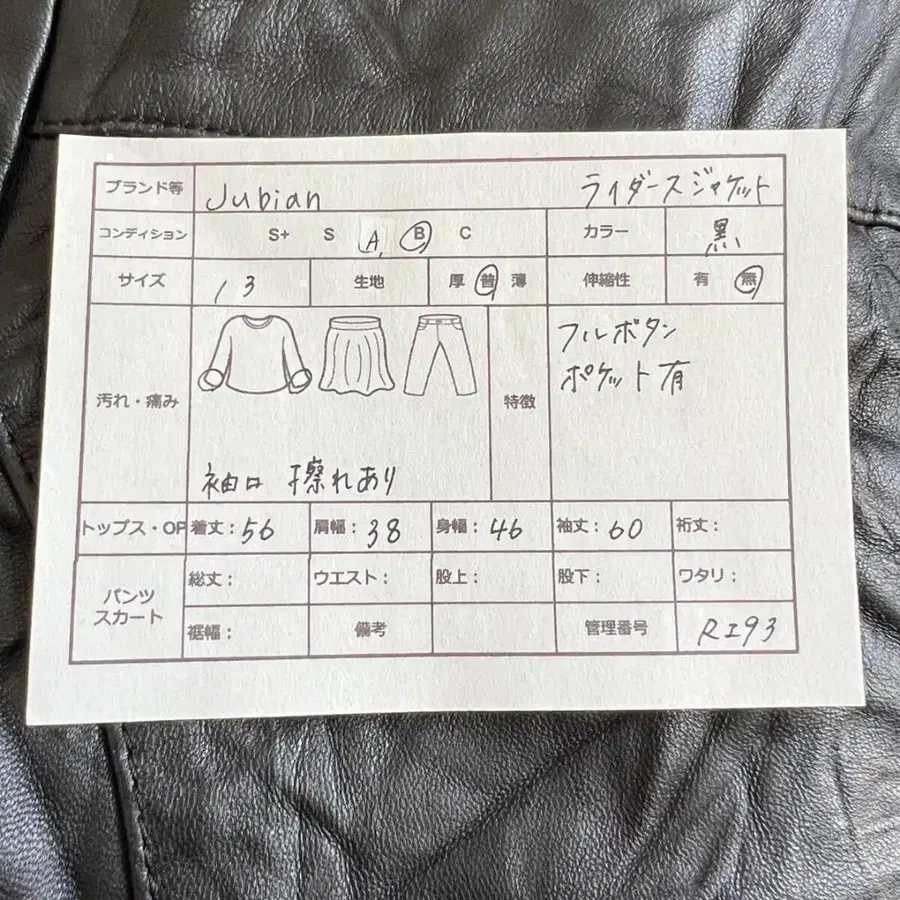 ブランド等 Jubian ライダースジャケット
コンディション S+ S A B C カラー 黒
サイズ 13 生地 厚 普 薄 伸縮性 有 無
汚れ・痛み 袖口 擦れあり 特徴 フルボタン
ポケット有
トップス・OP 着丈：56 肩幅：38 身幅：46 袖丈：60 裄丈：
パンツ スカート 総丈： ウエスト： 股上： 股下： ワタリ：
裾幅： 備考 管理番号 RI93